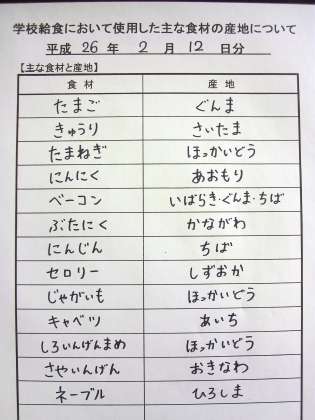 学校給食において使用した主な食材の産地について
平成 26 年 2 月 12 日分
【主な食材と産地】
食材 産地
たまご ぐんま
きゅうり さいたま
たまねぎ ほっかいどう
にんにく あおもり
ベーコン いばらき・ぐんま・ちば
ぶたにく かながわ
にんじん ちば
セロリー しずおか
じゃがいも ほっかいどう
キャベツ あいち
しろいんげんまめ ほっかいどう
さやいんげん おきなわ
ネーブル ひろしま